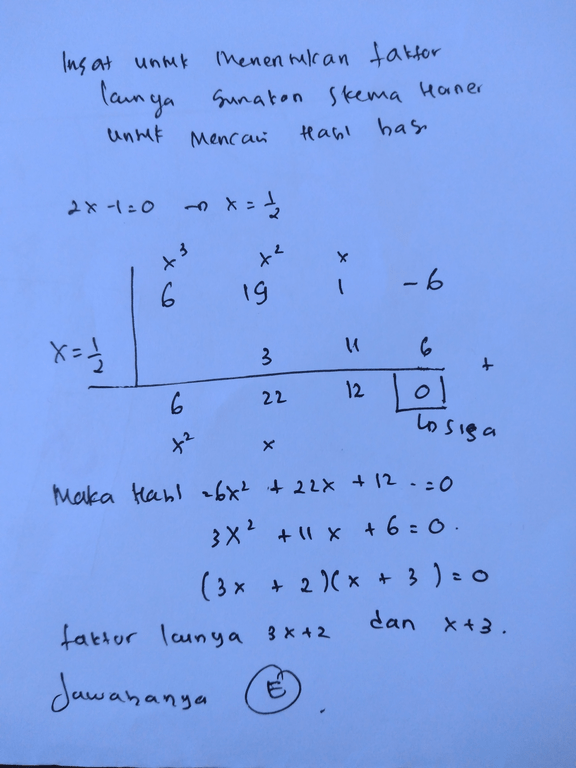 Ingat untuk menentukan faktor
lainya gunakan skema Horner
untuk mencari Hasil bagi
2x -1=0 → x = 1/2
x³ x² x
6 19 1 -6
x = 1/2
3 11 6 +
6 22 12 0
↳ sisa
x² x
Maka Hasil =6x² + 22x + 12 =0
3x² + 11 x + 6 = 0.
(3x + 2)(x + 3) = 0
faktor lainya 3x+2 dan x+3.
Jawabanya E.